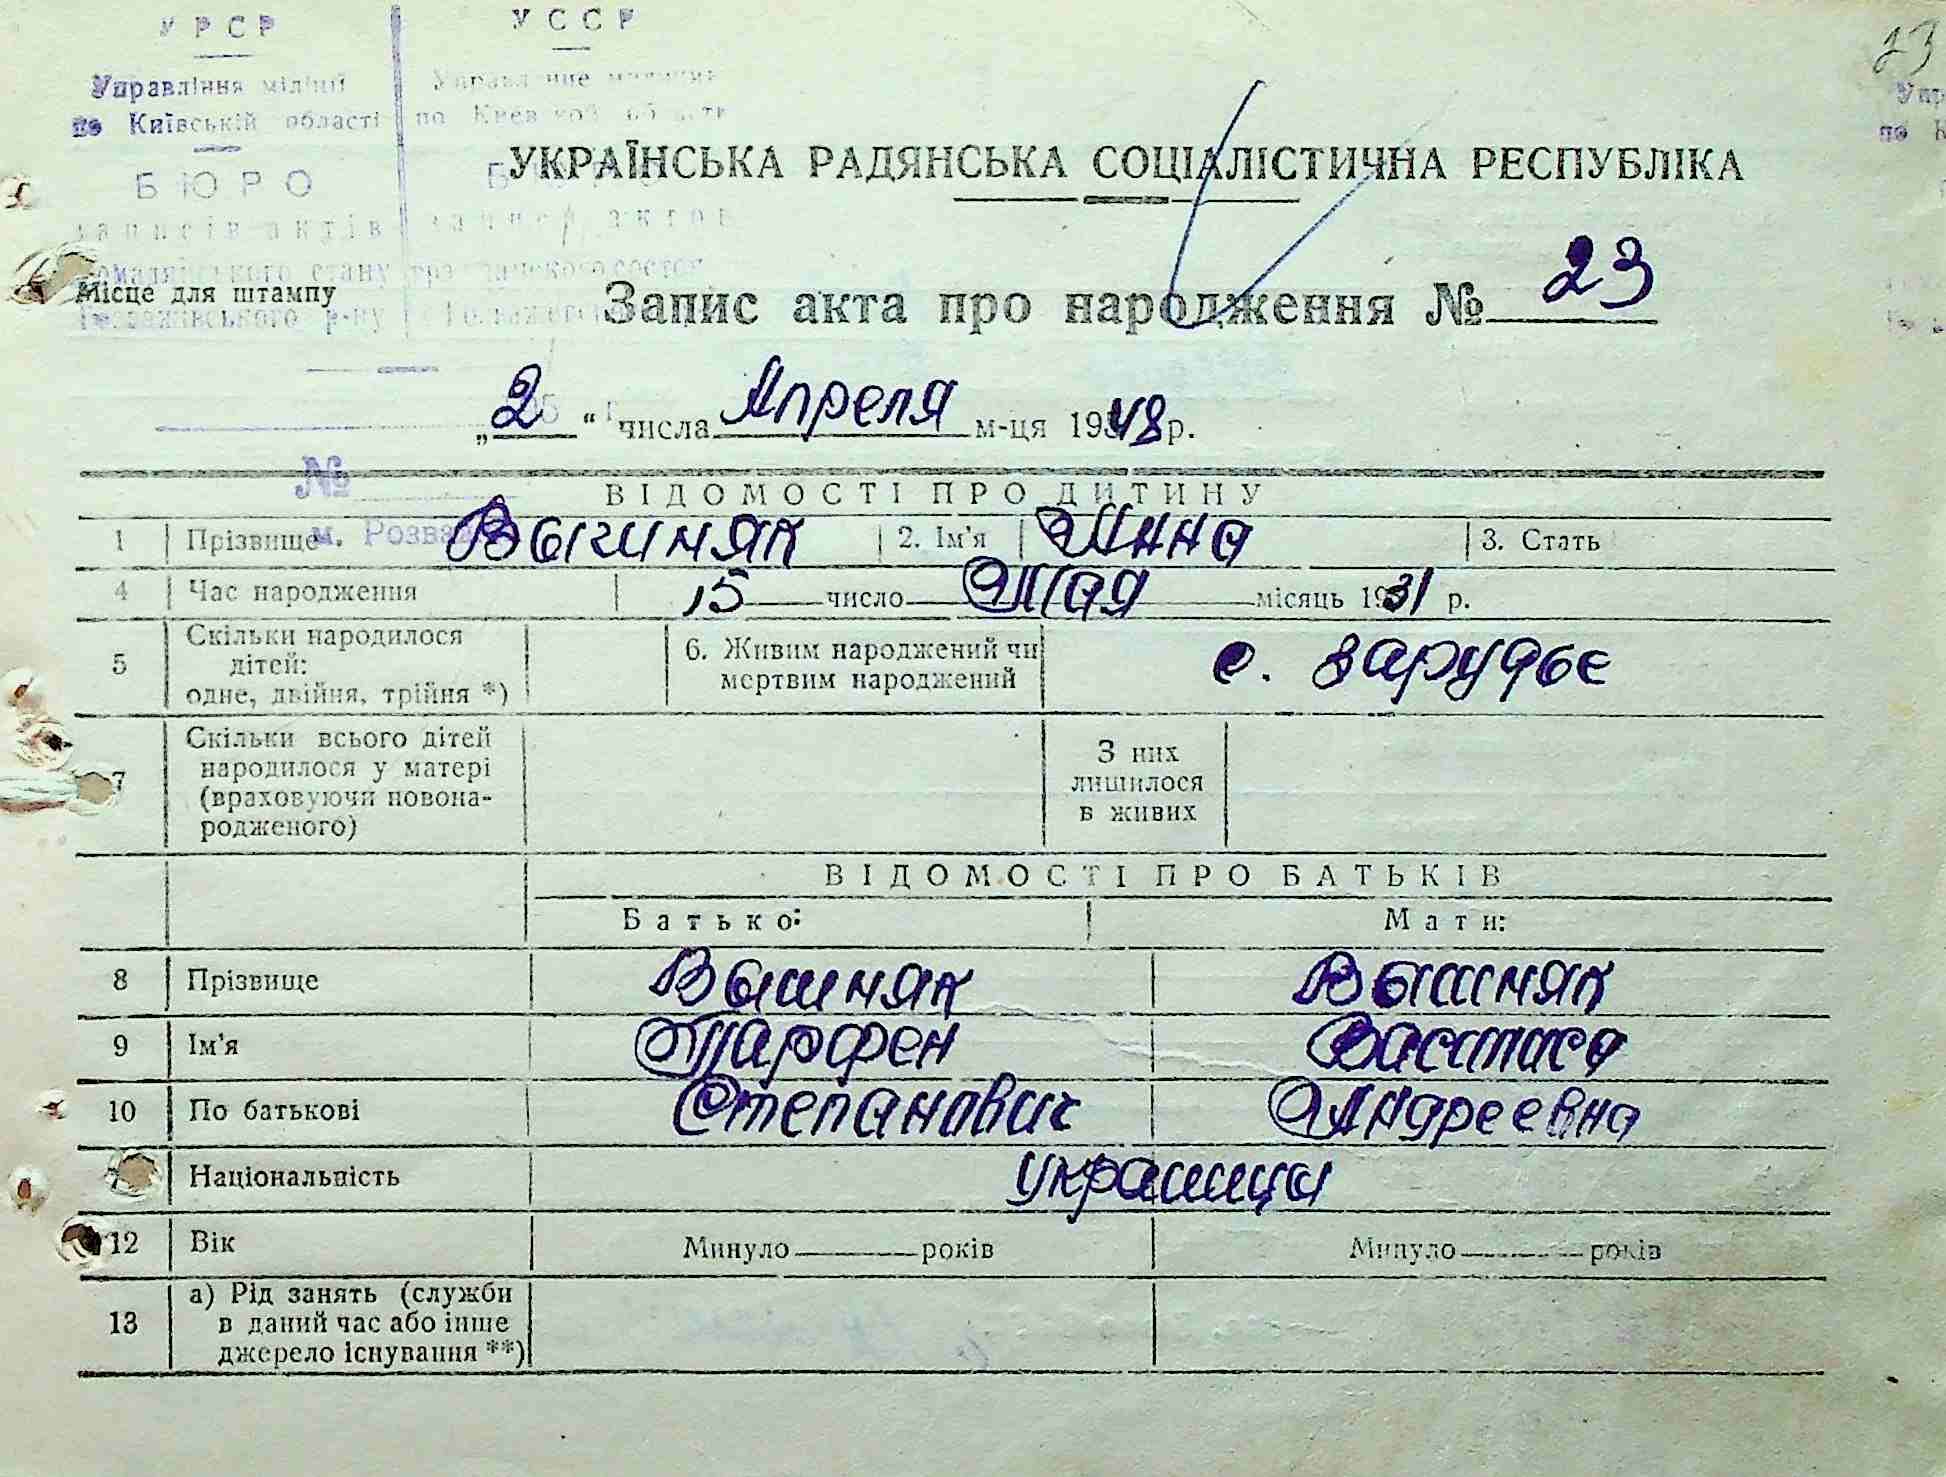 УРСР
УССР
23
Управління міліції
по Київській області
БЮРО
записів актів
УКРАЇНСЬКА РАДЯНСЬКА СОЦІАЛІСТИЧНА РЕСПУБЛІКА
Місце для штампу
Запис акта про народження № 23
„2“ числа Апреля м-ця 1948 р.
№
ВІДОМОСТІ ПРО ДИТИНУ
1 Прізвище 2. Ім'я Анна 3. Стать
4 Час народження 15 число Мая місяць 1931 р.
5 Скільки народилося дітей: одне, двійня, трійня *) 6. Живим народжений чи мертвим народжений с. Зарудье
7 Скільки всього дітей народилося у матері (враховуючи новонародженого) З них лишилося в живих
ВІДОМОСТІ ПРО БАТЬКІВ
Батько: Мати:
8 Прізвище Вышняк Вышняк
9 Ім'я Парфен
10 По батькові Степанович Андреевна
Національність украинцы
12 Вік Минуло років Минуло років
13 а) Рід занять (служби в даний час або інше джерело існування **)